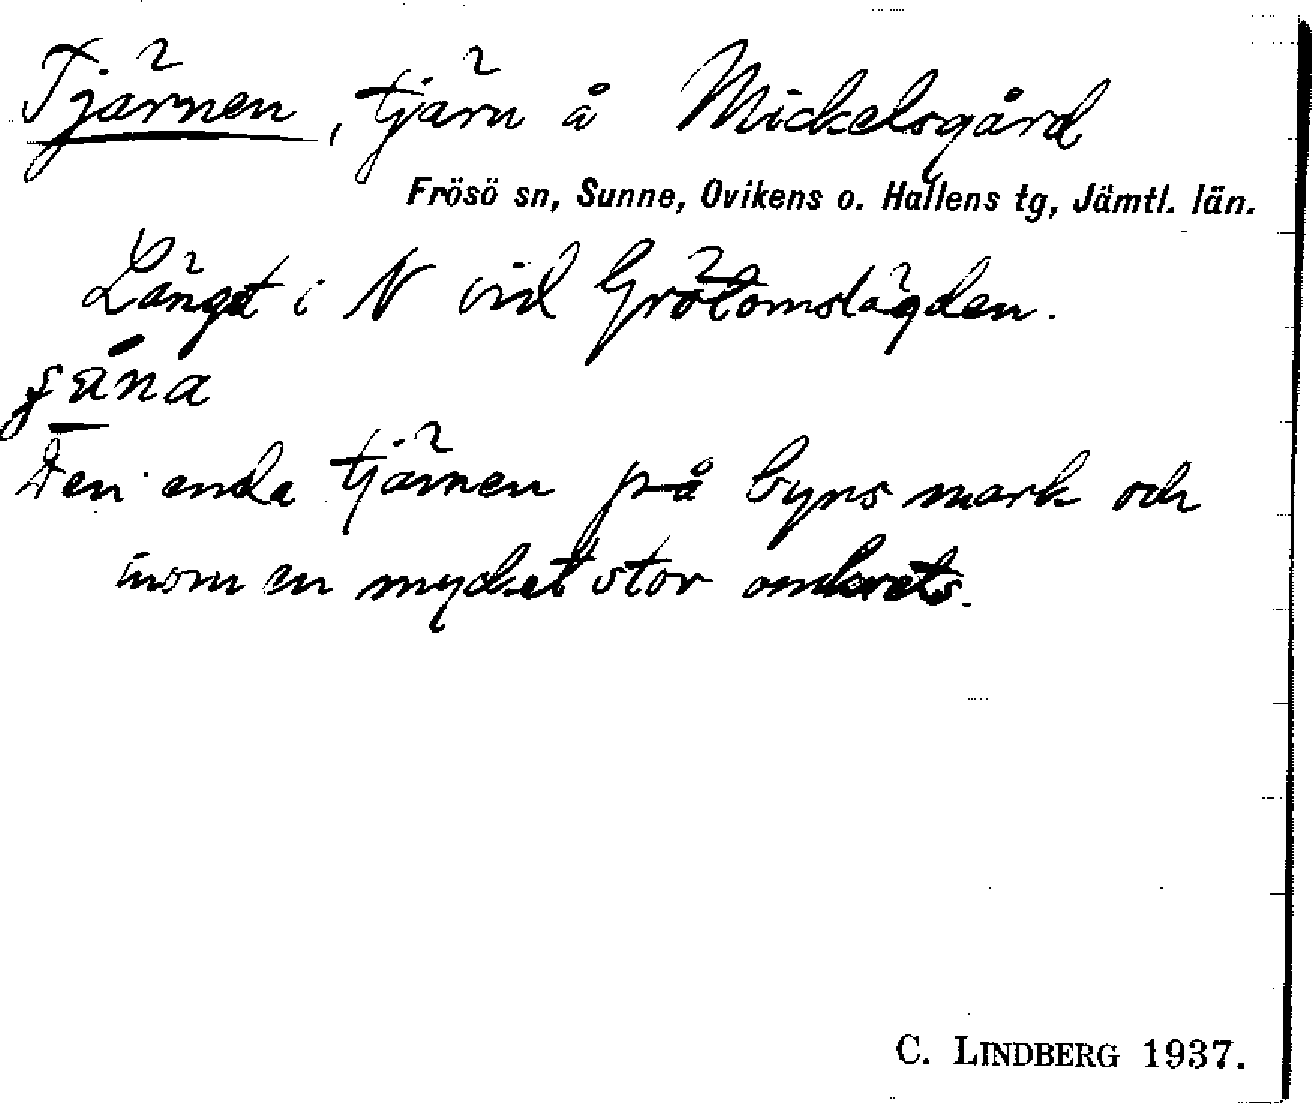 Tjärnen, tjärn å Mickelsgård
Frösö sn, Sunne, Ovikens o. Hallens tg, Jämtl. län.
Längst i N vid Grötomslägden.
Den enda tjärnen på byns mark och
inom en mycket stor omkrets.
C. LINDBERG 1937.